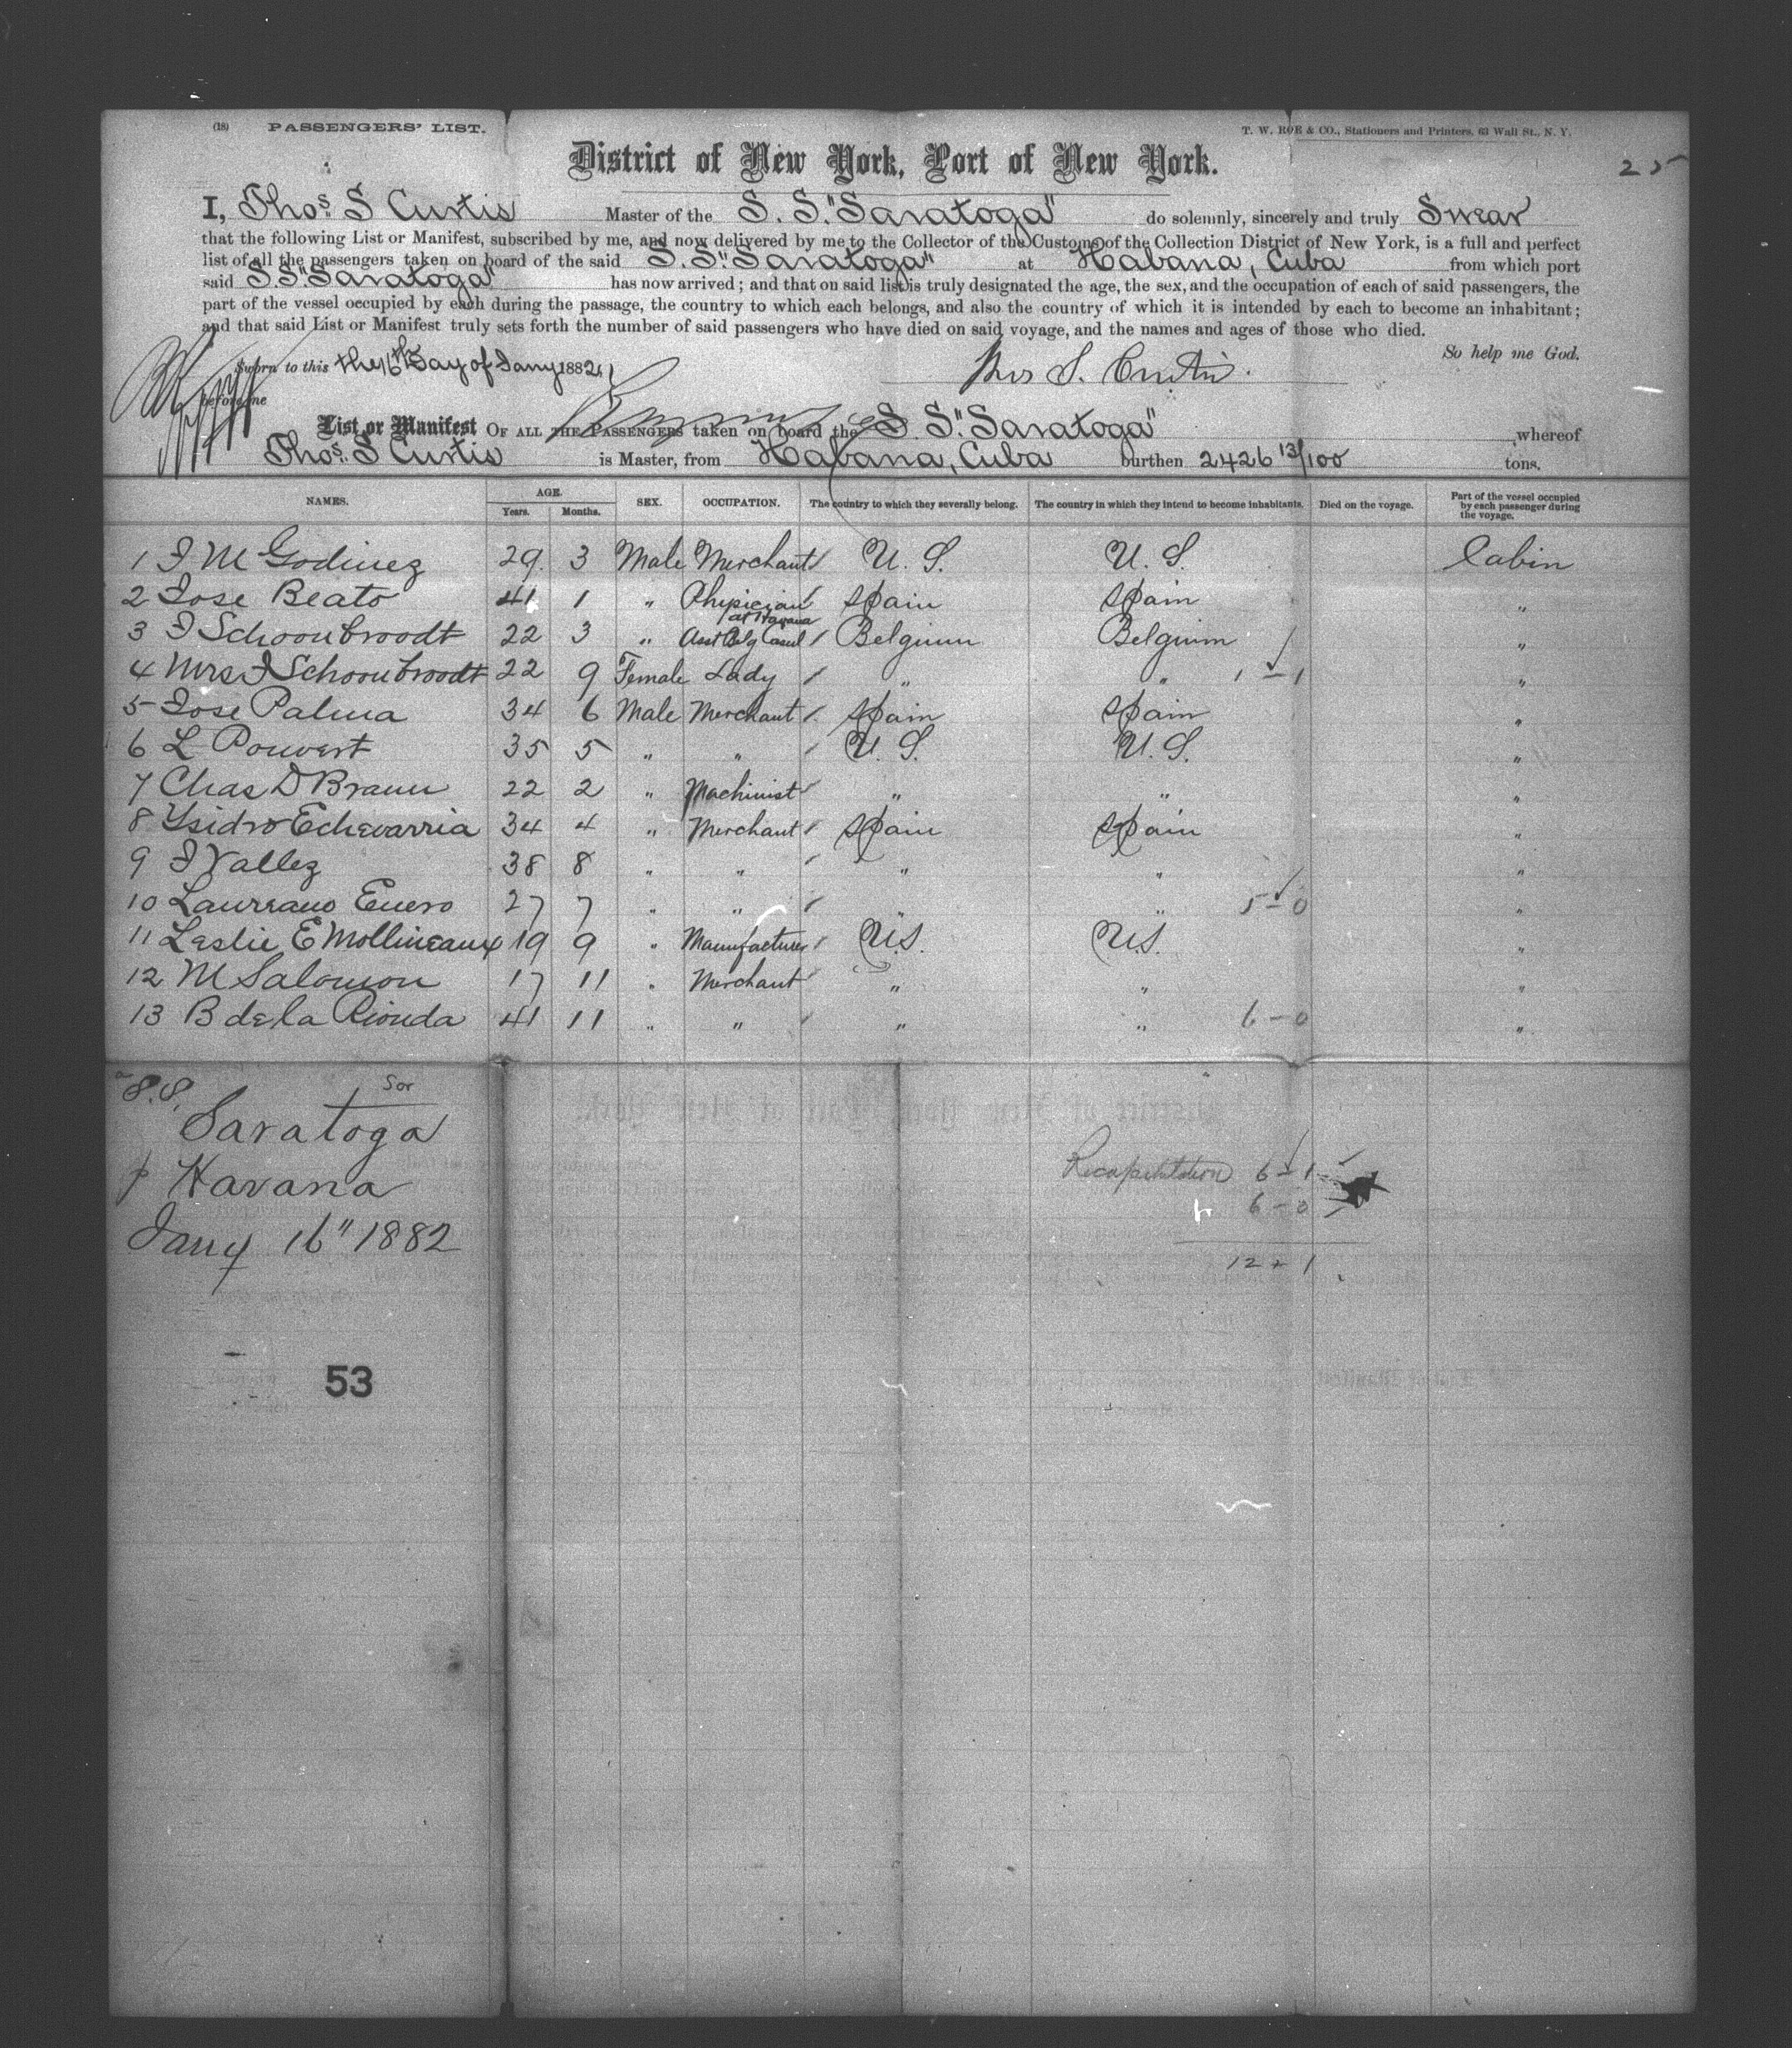 (18) PASSENGERS' LIST.
T. W. ROE & CO., Stationers and Printers, 63 Wall St., N. Y.
25
District of New York, Port of New York.
I, Thos. S Curtis Master of the S. S. "Saratoga" do solemnly, sincerely and truly Swear
that the following List or Manifest, subscribed by me, and now delivered by me to the Collector of the Customs of the Collection District of New York, is a full and perfect
list of all the passengers taken on board of the said S. S. "Saratoga" at Habana, Cuba from which port
said S.S. "Saratoga" has now arrived; and that on said list is truly designated the age, the sex, and the occupation of each of said passengers, the
part of the vessel occupied by each during the passage, the country to which each belongs, and also the country of which it is intended by each to become an inhabitant;
and that said List or Manifest truly sets forth the number of said passengers who have died on said voyage, and the names and ages of those who died.
So help me God.
Sworn to this the 16th Day of Jany 1882,
Thos S. Curtis.
before me
List or Manifest OF ALL THE PASSENGERS taken on board the S. S. "Saratoga" whereof
Thos. S Curtis is Master, from Habana, Cuba burthen 2426 13/100 tons.
NAMES. AGE. Years. Months. SEX. OCCUPATION. The country to which they severally belong. The country in which they intend to become inhabitants. Died on the voyage. Part of the vessel occupied by each passenger during the voyage.
1 J M Godinez 29 3 Male Merchant U. S. U. S. Cabin
2 Jose Beato 41 1 " Physician Spain Spain "
3 J Schoonbroodt 22 3 " Asst Belg Consl at Havana Belgium Belgium "
4 Mrs J Schoonbroodt 22 9 Female Lady " " 1 - 1 "
5 Jose Palma 34 6 Male Merchant Spain Spain "
6 L Pouvert 35 5 " " U. S. U. S. "
7 Chas D Braun 22 2 " Machinist " " "
8 Ysidro Echevarria 34 4 " Merchant Spain Spain "
9 J Vallez 38 8 " " " " "
10 Laureano Enero 27 7 " " " " 5 - 0 "
11 Leslie E Mollineaux 19 9 " Manufacturer U.S. U.S. "
12 M Salomon 17 11 " Merchant " " "
13 B de la Rionda 41 11 " " " " 6 - 0 "
S.S. Sar
Saratoga
p Havana
Jany 16" 1882
Recapitulation 6 - 1
6 - 0
12 + 1
53